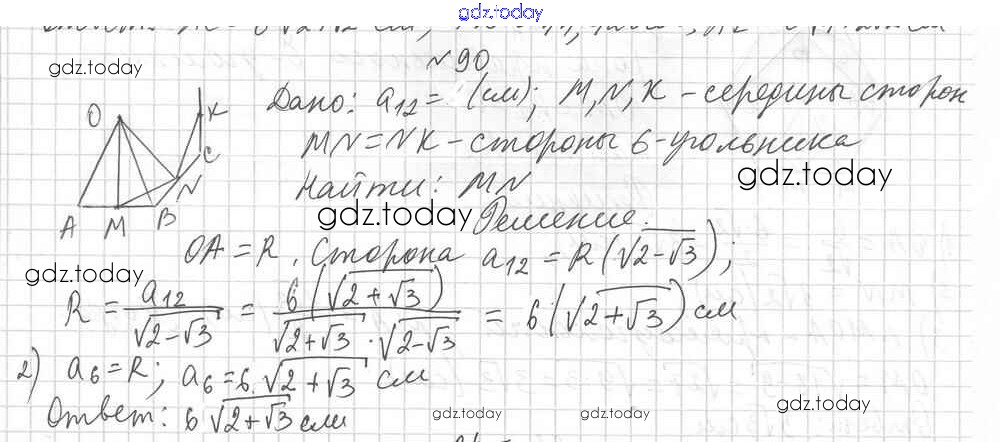 gdz.today
№90
gdz.today
Дано: a₁₂ = (см); M, N, K - середины сторон
MN = NK - стороны 6-угольника
gdz.today
Найти: MN
gdz.today
Решение.
OA = R. Сторона a₁₂ = R(√2-√3);
gdz.today
R = a₁₂/√2-√3 = 6(√2+√3)/√2+√3 · √2-√3 = 6(√2+√3) см
2) a₆ = R; a₆ = 6√2+√3 см
Ответ: 6√2+√3 см
gdz.today
gdz.today
gdz.today
O
K
C
N
A
M
B